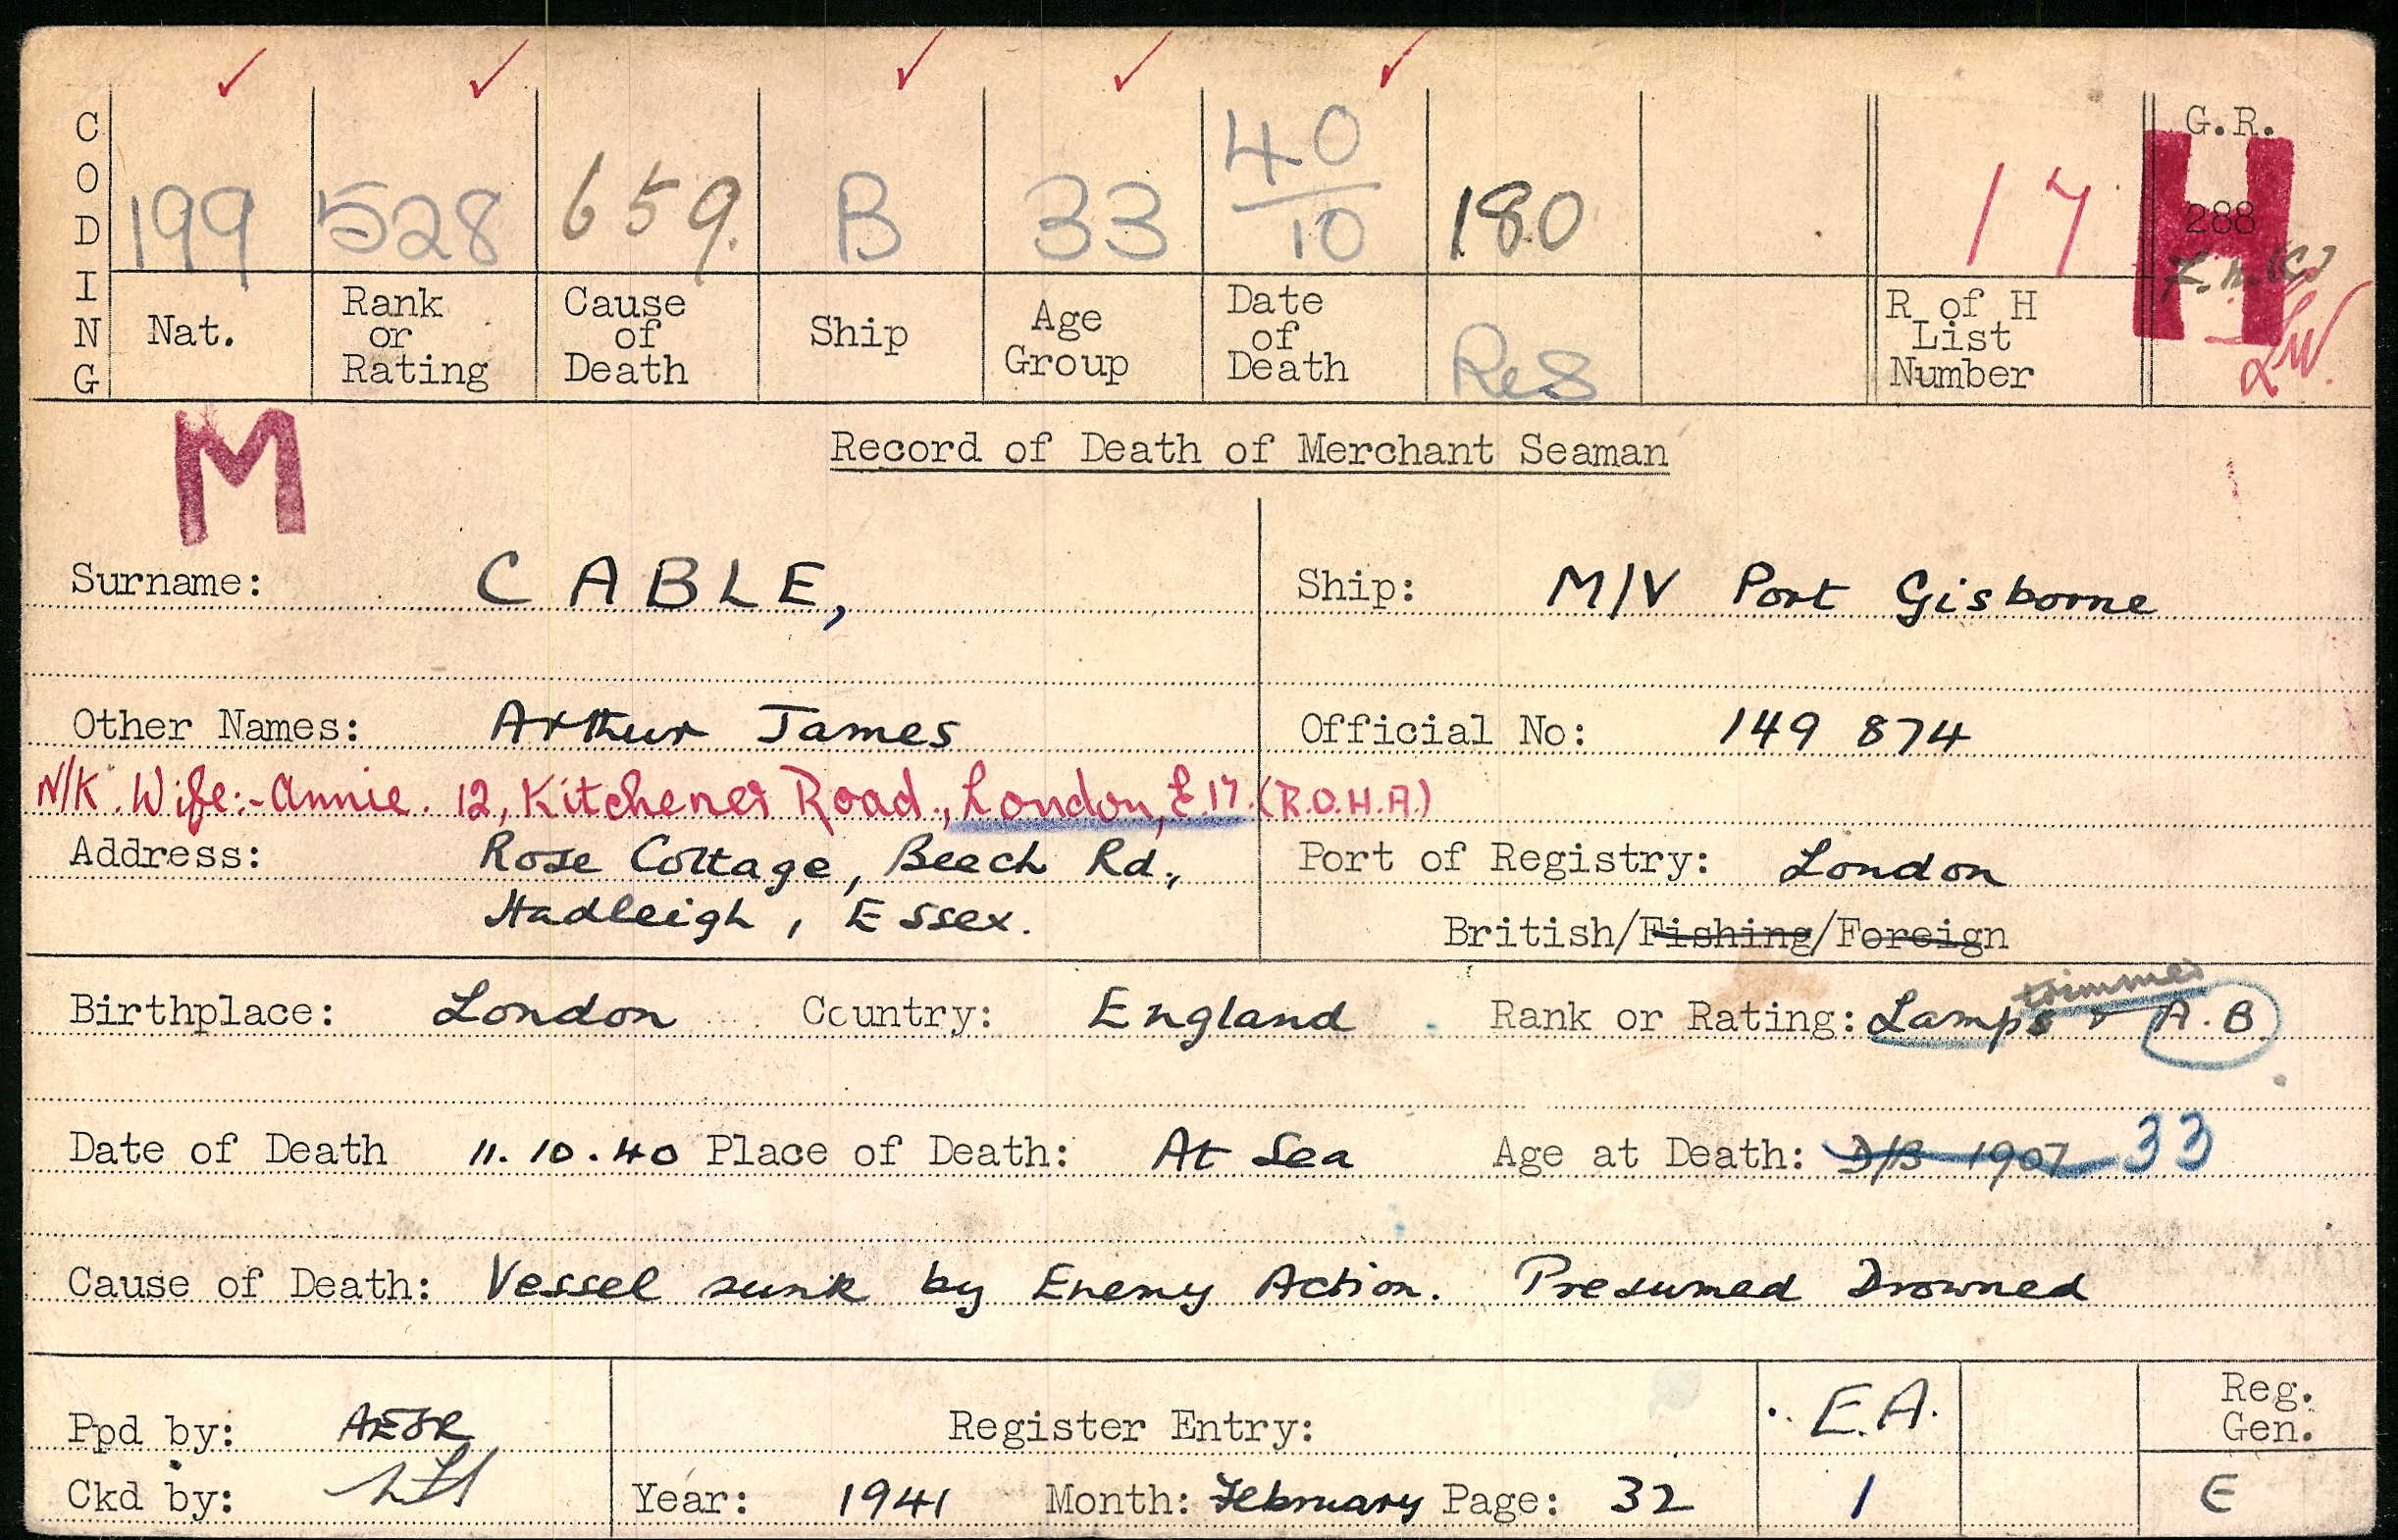 CODING
199 528 659. B 33 40/10 180 17 G.R. 288
H
Nat. Rank or Rating Cause of Death Ship Age Group Date of Death Res R of H List Number
M
Record of Death of Merchant Seaman
Surname: CABLE, Ship: M/V Port Gisborne
Other Names: Arthur James Official No: 149 874
N/K. Wife:- Annie. 12, Kitchener Road, London, E.17. (R.O.H.A.)
Address: Rose Cottage, Beech Rd., Port of Registry: London
Hadleigh, Essex. British/Fishing/Foreign
trimmer
Birthplace: London Country: England Rank or Rating: Lamps & A.B
Date of Death 11.10.40 Place of Death: At Sea Age at Death: D/B 1907 33
Cause of Death: Vessel sunk by Enemy Action. Presumed Drowned
Ppd by: Register Entry: E.A. Reg. Gen.
Ckd by: Year: 1941 Month: February Page: 32 1 E